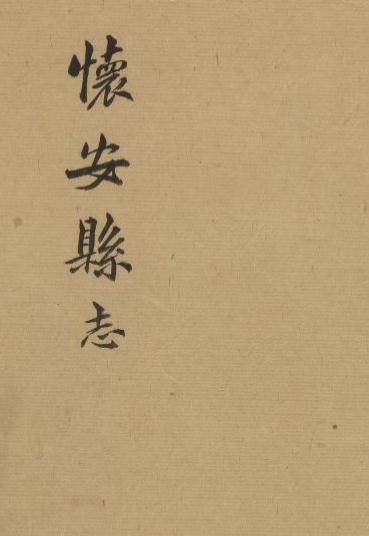 懷安縣志